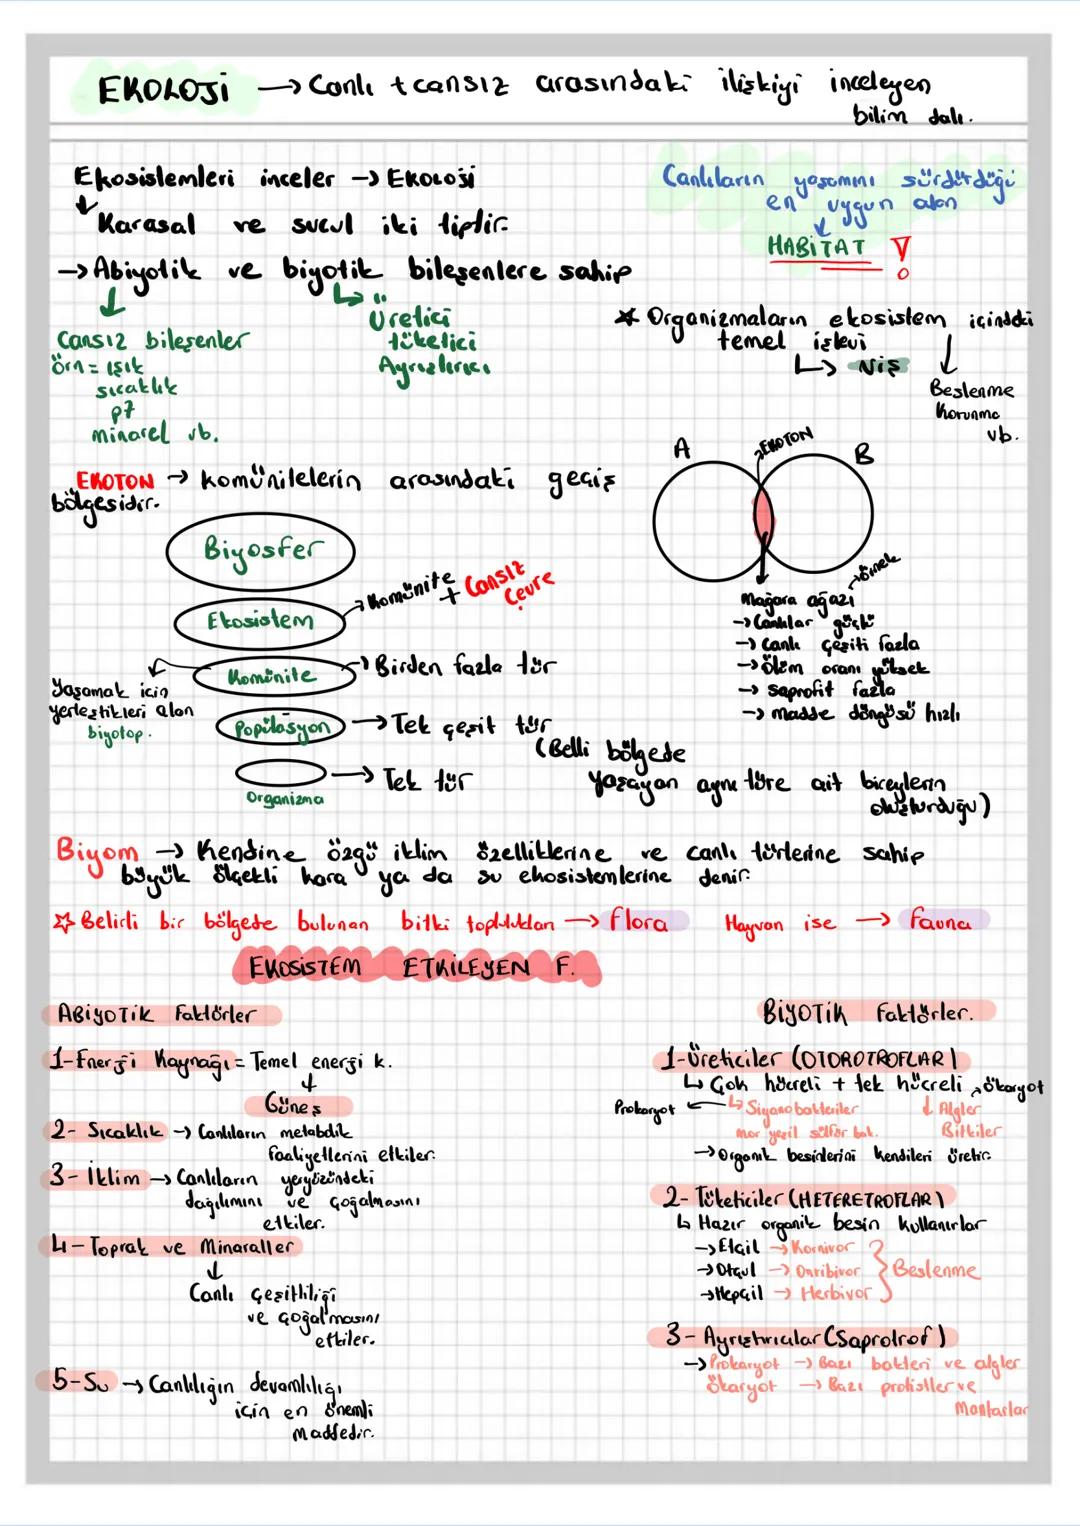 EKOLOJİ → Canlı + cansız arasındaki ilişkiyi inceleyen
bilim dalı.
Ekosistemleri inceler → EKOLOJİ
Karasal ve sucul iki tiptir.
→ Abiyotik ve biyotik bileşenlere sahip
Cansız bileşenler
örn = ışık
sıcaklık
p7
minarel vb.
Üretici
tüketici
Ayrıştırıcı
Canlıların yaşamını sürdürdüğü
en uygun alan
HABİTAT !
* Organizmaların ekosistem içindeki
temel işlevi
↳ Niş
Beslenme
Korunma
vb.
EKOTON → komünitelerin arasındaki geçiş
bölgesidir.
A
EKOTON
B
örnek
Mağara ağazı
→ Canlılar güçlü
→ Canlı çeşiti fazla
→ Ölüm oranı yüksek
→ saprofit fazla
→ madde döngüsü hızlı
Biyosfer
Ekosistem
→ Komünite + Cansız
Çevre
Komünite
→ Birden fazla tür
Yaşamak için
yerleştikleri alan
biyotop.
Popülasyon → Tek çeşit tür
(Belli bölgede
yaşayan aynı türe ait bireylerin
oluşturduğu)
→ Tek tür
Organizma
Biyom → Kendine özgü iklim özelliklerine ve canlı türlerine sahip
büyük ölçekli kara ya da su ekosistemlerine denir.
☆ Belirli bir bölgede bulunan bitki toplulukları → flora Hayvan ise → fauna
EKOSİSTEM ETKİLEYEN F.
ABİYOTİK Faktörler
1-Enerji Kaynağı = Temel enerji k.
Güneş
2- Sıcaklık → Canlıların metabolik
faaliyetlerini etkiler.
3- İklim → Canlıların yeryüzündeki
dağılımını ve çoğalmasını
etkiler.
4- Toprak ve Minaraller
Canlı çeşitliliği
ve çoğalmasını
etkiler.
5-Su → Canlılığın devamlılığı
için en önemli
maddedir.
BİYOTİK Faktörler.
1-Üreticiler (OTOROTROFLAR)
↳ Çok hücreli + tek hücreli → ökaryot
Prokaryot ← ↳ Siyanobakteriler ↓ Algler
mor yeşil sülfür bak. Bitkiler
→ Organik besinlerini kendileri üretir
2- Tüketiciler (HETERETROFLAR)
↳ Hazır organik besin kullanırlar
→ Etçil → Karnivor
→ Otçul → Omribivor } Beslenme
→ Hepçil → Herbivor
3- Ayrıştırıcılar (Saprotrof)
→ Prokaryot → Bazı bakteri ve algler
Ökaryot → Bazı protistler ve
Mantarlar